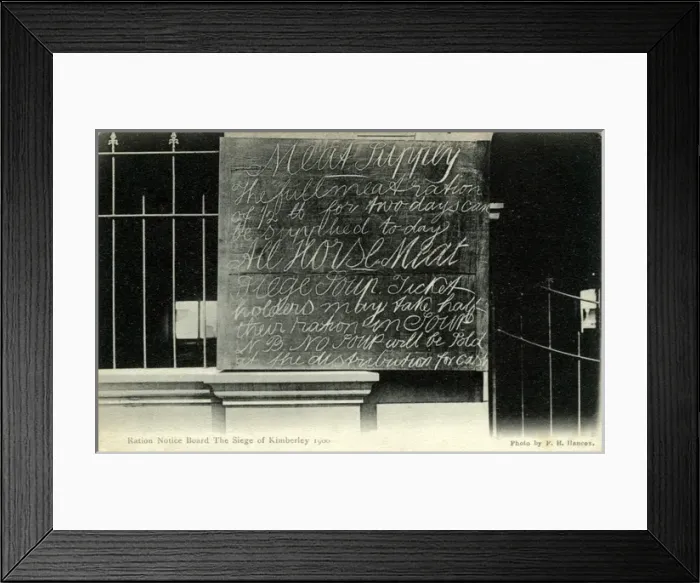 Meat Supply
The full meat ration
of ½ lb for two days can
be supplied to-day
All Horse Meat
Siege Soup Ticket
holders may take half
their ration in SOUP
N.B. No SOUP will be Sold
at the distribution for Cash
Ration Notice Board The Siege of Kimberley 1900
Photo by F. H. Hancox.